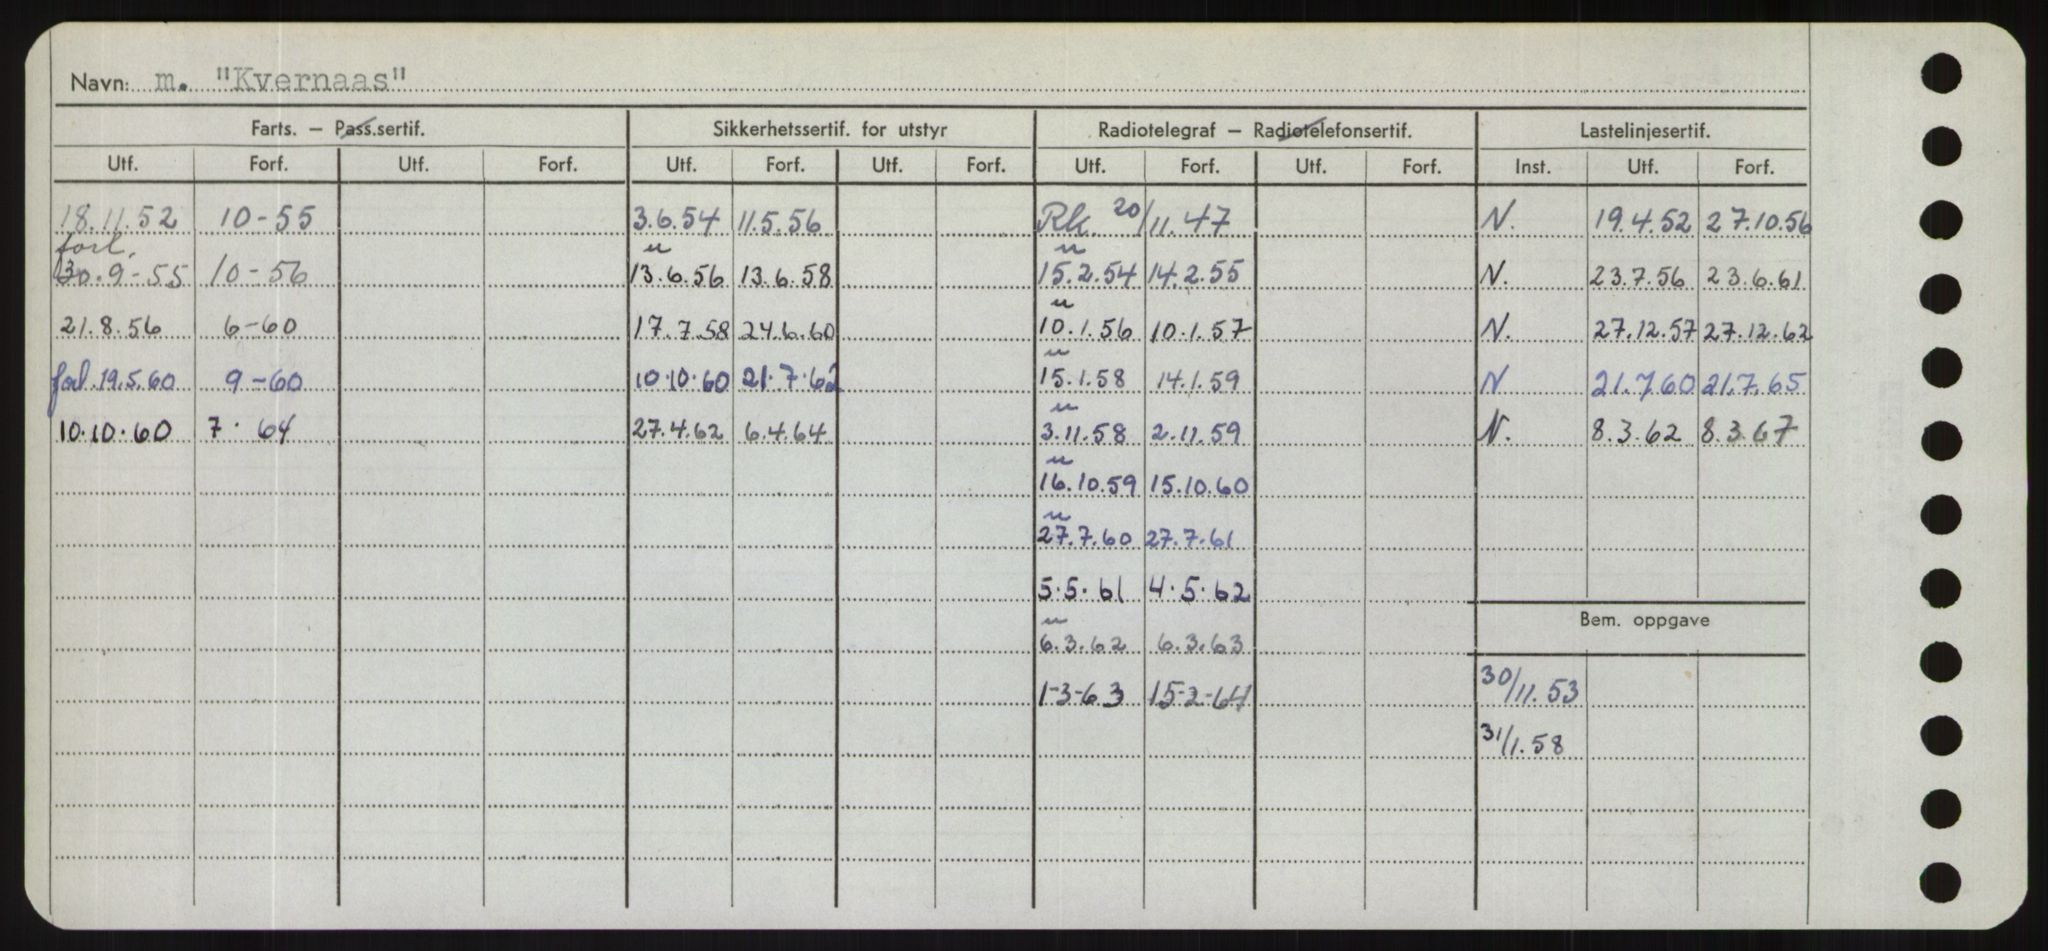 Navn: m. "Kvernaas"
Farts. – Pass.sertif. Sikkerhetssertif. for utstyr Radiotelegraf – Radiotelefonsertif. Lastelinjesertif.
Utf. Forf. Utf. Forf. Utf. Forf. Utf. Forf. Utf. Forf. Utf. Forf. Inst. Utf. Forf.
18.11.52 10-55 3.6.54 11.5.56 Rk. 20/11.47 N. 19.4.52 27.10.56
forl. u u
30.9-55 10-56 13.6.56 13.6.58 15.2.54 14.2.55 N. 23.7.56 23.6.61
u
21.8.56 6-60 17.7.58 24.6.60 10.1.56 10.1.57 N. 27.12.57 27.12.62
u
forl. 19.5.60 9-60 10.10.60 21.7.62 15.1.58 14.1.59 N 21.7.60 21.7.65
u
10.10.60 7. 64 27.4.62 6.4.64 3.11.58 2.11.59 N. 8.3.62 8.3.67
u
16.10.59 15.10.60
u
27.7.60 27.7.61
5.5.61 4.5.62
Bem. oppgave
u
6.3.62 6.3.63
1-3-63 15-2-64 30/11.53
31/1.58